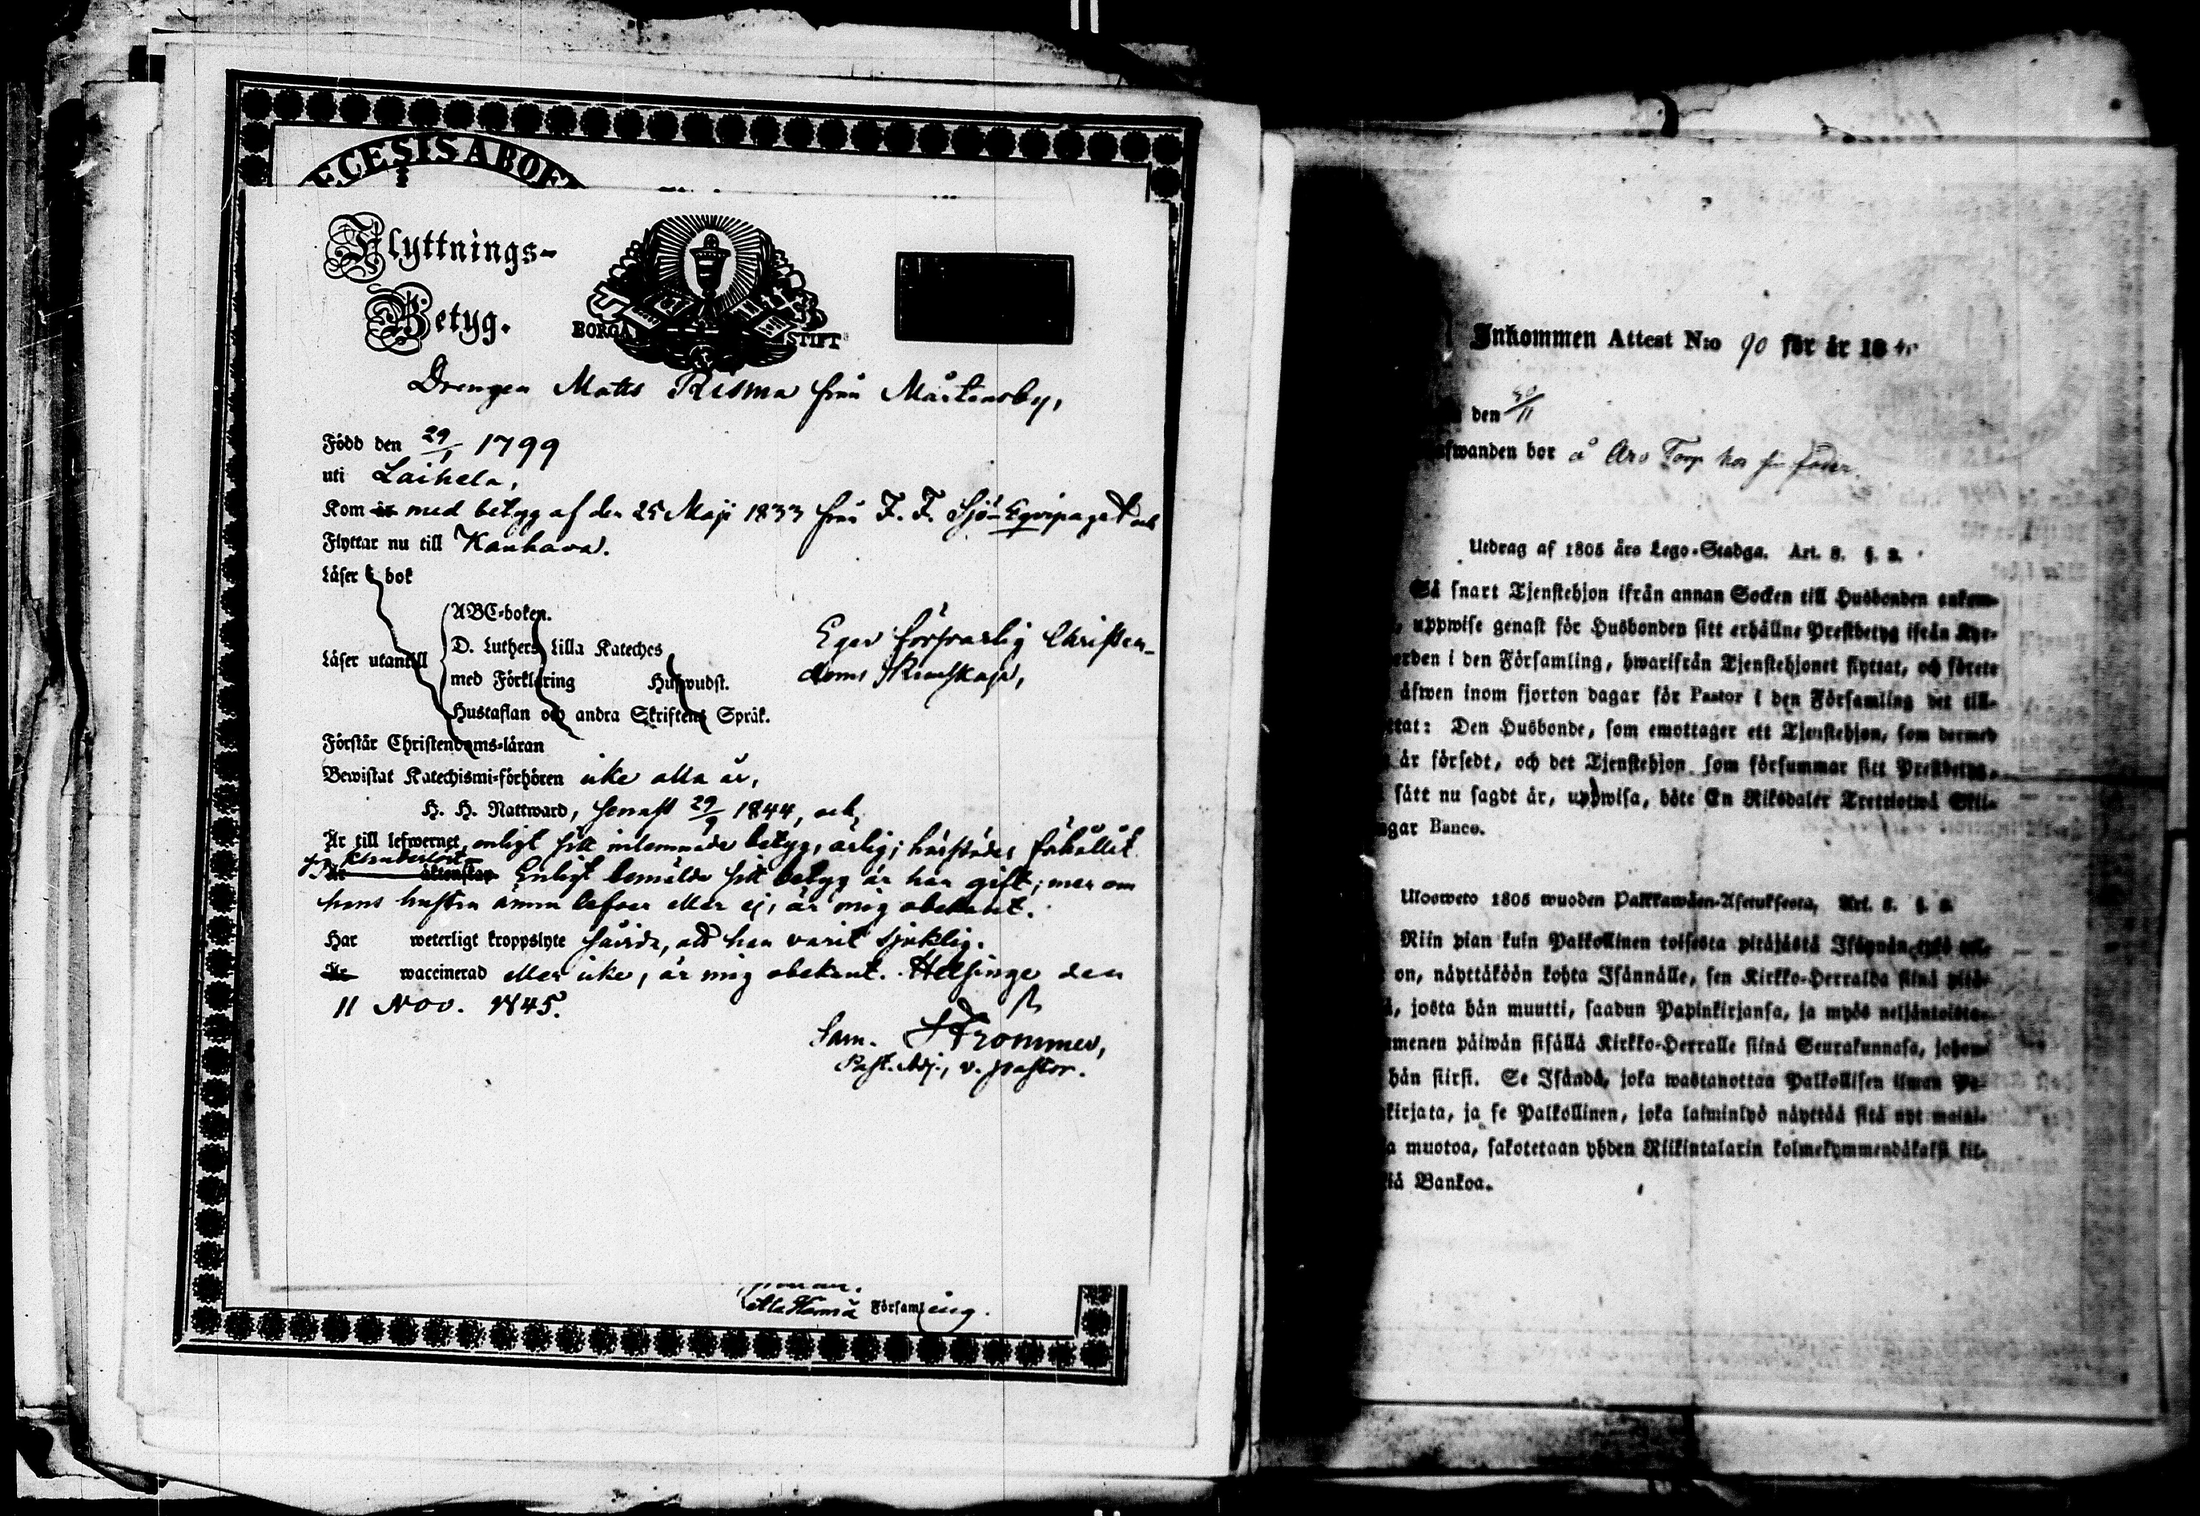 ECESIS ABOE
Flyttnings-
Betyg.
BORGÅ STIFT
Drengen Matts Risma från Mårtensby,
Född den 29/1 1799
uti Laihela,
Kom är med betyg af den 25 Maji 1833 från F. F. Sjö-Eqvipaget och
Flyttar nu till Kauhava.
Läser i bok
ABC-boken.
D. Luthers Lilla Kateches
Läser utantill
med Förklaring Hufwudst.
Hustaflan och andra Skriftens Språk.
Eger försvarlig Christen-
doms Kunskap,
Förstår Christendoms-läran
Bewistat Katechismi-förhören icke alla år,
H. H. Nattward, senast 29/9 1844, och
Är till lefwernet, enligt sitt inlemnade betyg, ärlig; härstädes förhållit
sig klanderlöst
Är äktenskap Enligt bemälde sitt betyg är han gift; men om
hans hustru ännu lefver eller ej, är mig obekant.
Har weterligt kroppslyte säges, att han varit sjuklig.
Är waccinerad eller icke, är mig obekant. Helsinge den
11 Nov. 1845.
Sam. Strommer,
Past. Adj., v. pastor.
Församling.
Inkommen Attest N:o 90 för år 184
den 30/11
afwanden bor å Aro Torp hos sin fader.
Utdrag af 1805 års Lego-Stadga. Art. 8. §. 2.
Så snart Tjenstehjon ifrån annan Socken till Husbonden ankom-
, uppwise genast för Husbonden sitt erhållne Prestbetyg ifrån Kyr-
erden i den Församling, hwarifrån Tjenstehjonet flyttat, och förete
äfwen inom fjorton dagar för Pastor i den Församling det till-
ttat: Den Husbonde, som emottager ett Tjenstehjon, som dermed
är försedt, och det Tjenstehjon som försummar sitt Prestbetyg,
sätt nu sagdt är, uppwisa, böte En Riksdaler Trettiotwå Skil-
gar Banco.
Ulosweto 1805 wuoden Palkkawäen-Asetuksesta, Art. 8. §. 2.
Niin pian kuin Palkollinen toisesta pitäjästä Isäynän tykö tul-
on, näyttäköön kohta Isännälle, sen Kirkko-Herralda siinä pitä-
, josta hän muutti, saadun Papinkirjansa, ja myös neljäntoista-
mmenen päiwän sisällä Kirkko-Herralle siinä Seurakunnasa, johon
hän siirsi. Se Isändä, joka wastanottaa Palkollisen ilman Pa-
kirjata, ja se Palkollinen, joka laiminlyö näyttää sitä nyt maini-
a muotoa, sakotetaan yhden Riikintalarin kolmekymmendäkaksi kil-
iä Bankoa.